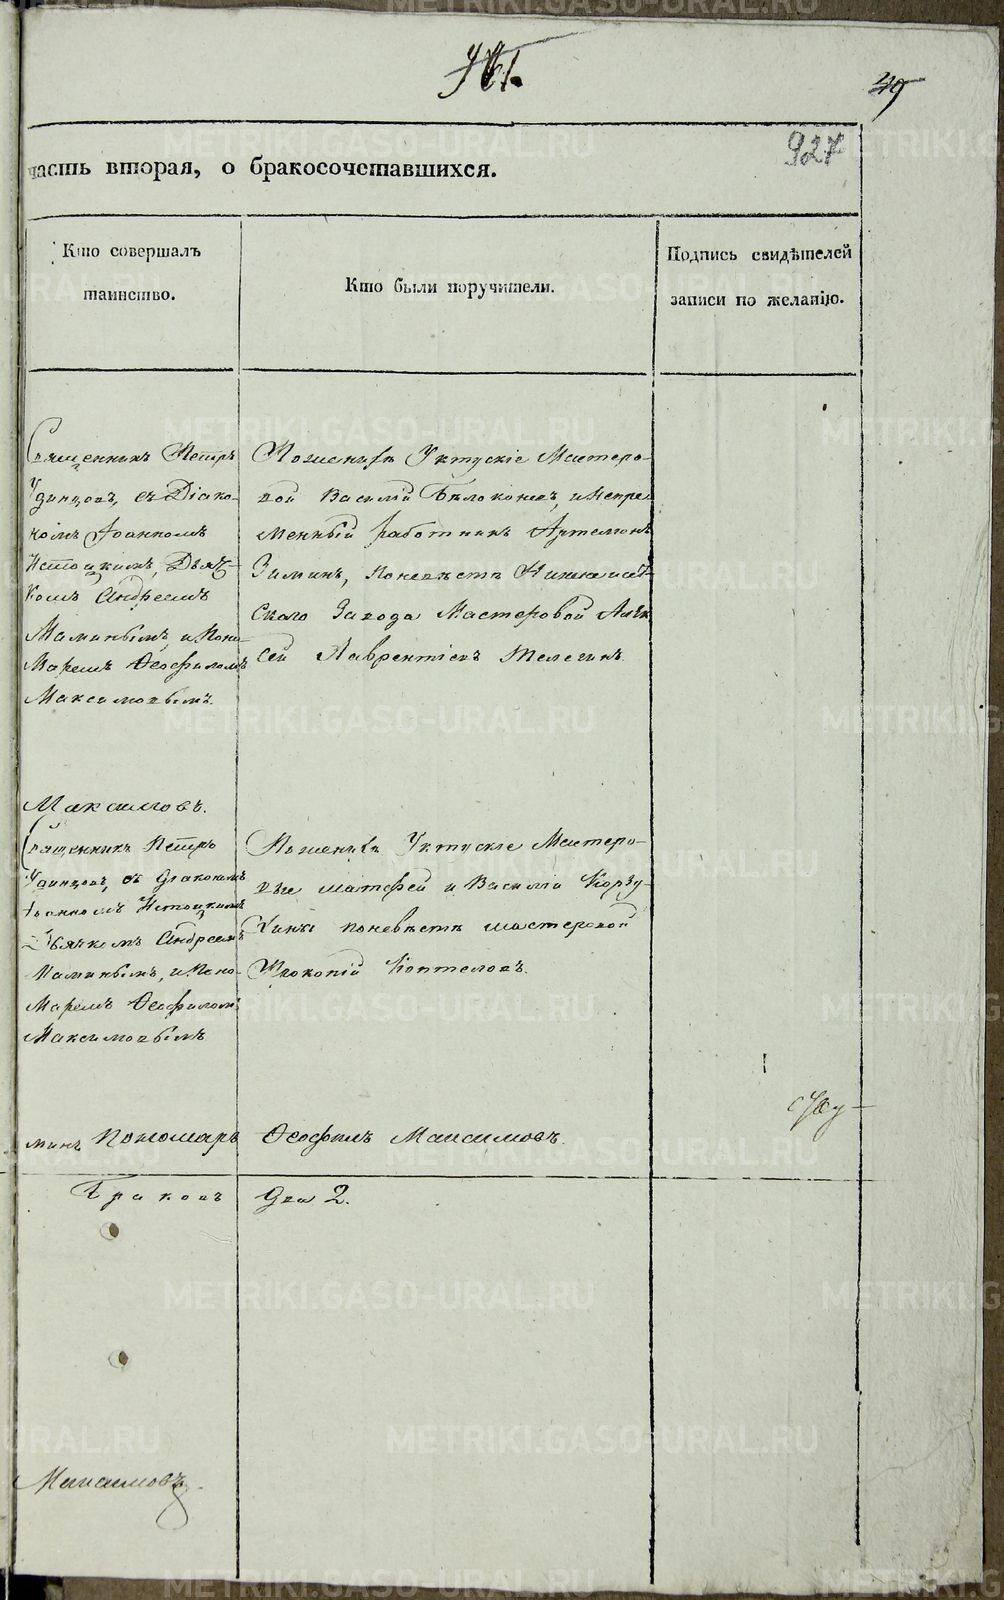 927
часть вторая, о бракосочетавшихся.
Кто совершалъ
таинство.
Кто были поручители.
Подпись свидѣтелей
записи по желанію.
Священникъ Петръ
Удинцовъ, съ Діако-
номъ Іоанномъ
Истоцкимъ, Дьяч-
комъ Андреемъ
Маминымъ, и Поно-
маремъ Ѳеофиломъ
Максимовымъ.
По женихѣ Уктускіе Мастеро-
вой Василій Бѣлоконевъ, и Непре-
менный работникъ Артемонъ
Зиминъ, по невѣстѣ Нижнеисет-
скаго Завода Мастеровой Алек
сей Лаврентіевъ Телегинъ.
Максимовъ.
Священникъ Петръ
Удинцовъ, съ Діакономъ
Іоанномъ Истоцкимъ
Дьячкомъ Андреемъ
Маминымъ, и Поно-
маремъ Ѳеофиломъ
Максимовымъ
По женихѣ Уктускіе Мастеро-
вые Матфей и Василій Корзу-
хины по невѣстѣ мастеровой
Прокопій Коптеловъ.
минъ Пономарь Ѳеофилъ Максимовъ.
Браковъ два 2.
Максимовъ
METRIKI.GASO-URAL.RU